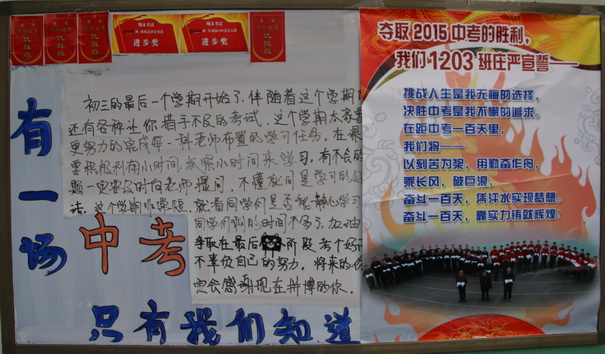 期末考试
进步奖
期末考试
进步奖
有一场
中考
只有我们知道
初三的最后一个学期开始了,伴随着这个学期
还有各种让你措手不及的考试,这个学期大家
更努力的完成每一科老师布置的学习任务,在
要积极利用小时间,抓紧小时间来学习,有不会的
题一定要及时向老师提问,不懂就问是学习的
法,这个学期非常短,就看同学们是否能静心学习
同学们的时间不多了,加油
争取在最后阶段考个好
不辜负自己的努力,将来的你
定会感谢现在拼搏的你.
夺取2015中考的胜利,
我们1203班庄严宣誓——
挑战人生是我无悔的选择,
决胜中考是我不懈的追求。
在距中考一百天里,
我们将——
以刻苦为桨,用勤奋作舟,
乘长风,破巨浪,
奋斗一百天,凭汗水实现梦想
奋斗一百天,靠实力铸就辉煌!